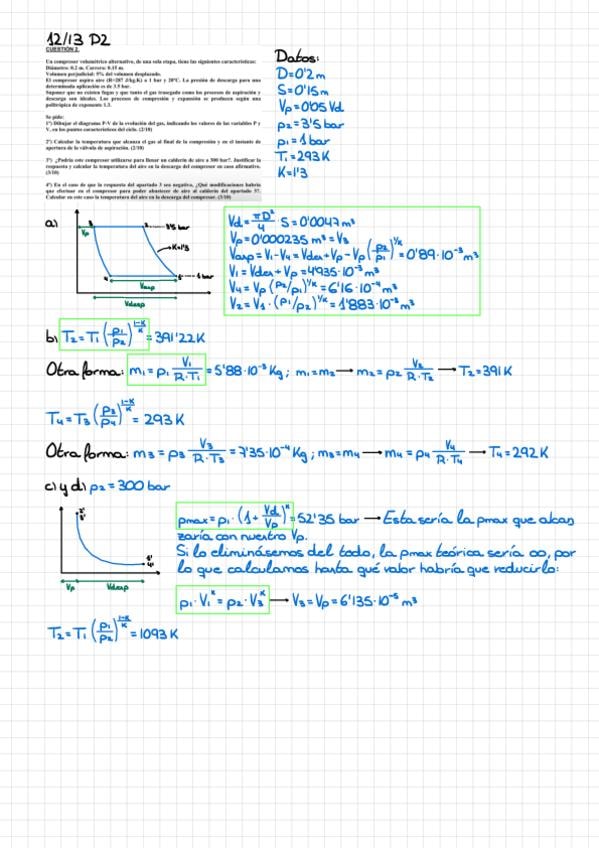 12/13 D2
CUESTIÓN 2.
Un compresor volumétrico alternativo, de una sola etapa, tiene las siguientes características:
Diámetro: 0.2 m. Carrera: 0.15 m.
Volumen perjudicial: 5% del volumen desplazado.
El compresor aspira aire (R=287 J/kg.K) a 1 bar y 20°C. La presión de descarga para una
determinada aplicación es de 3.5 bar.
Suponer que no existen fugas y que tanto el gas trasegado como los procesos de aspiración y
descarga son ideales. Los procesos de compresión y expansión se producen según una
politrópica de exponente 1.3.
Se pide:
1º) Dibujar el diagrama P-V de la evolución del gas, indicando los valores de las variables P y
V, en los puntos característicos del ciclo. (2/10)
2º) Calcular la temperatura que alcanza el gas al final de la compresión y en el instante de
apertura de la válvula de aspiración. (2/10)
3º) ¿Podría este compresor utilizarse para llenar un calderín de aire a 300 bar?. Justificar la
respuesta y calcular la temperatura del aire en la descarga del compresor en caso afirmativo.
(3/10)
4º) En el caso de que la respuesta del apartado 3 sea negativa, ¿Qué modificaciones habría
que efectuar en el compresor para poder abastecer de aire al calderín del apartado 3?.
Calcular en este caso la temperatura del aire en la descarga del compresor. (3/10)
Datos:
D=0'2m
S=0'15m
Vp=0'05 Vd
p2=3'5 bar
p1=1 bar
T1=293K
K=1'3
a)
Vp
3
2
3'5 bar
K=1'3
4
1 bar
Vasp
Vdesp
Vd = πD²/4 · S = 0'0047 m³
Vp = 0'000235 m³ = V3
Vasp = V1-V4 = Vdes+Vp-Vp (p2/p1)^1/K = 0'89·10⁻³ m³
V1 = Vdes+Vp = 4'935·10⁻³ m³
V4 = Vp (p2/p1)^1/K = 6'16·10⁻⁴ m³
V2 = V1 · (p1/p2)^1/K = 1'883·10⁻³ m³
b) T2 = T1 (p1/p2)^1-K/K = 391'22 K
Otra forma: m1 = p1 V1/R·T1 = 5'88·10⁻³ Kg ; m1=m2 → m2 = p2 V2/R·T2 → T2=391K
T4 = T3 (p3/p4)^1-K/K = 293 K
Otra forma: m3 = p3 V3/R·T3 = 7'35·10⁻⁴ Kg ; m3=m4 → m4 = p4 V4/R·T4 → T4=292K
c) y d) p2 = 300 bar
Vp
Vdesp
pmax = p1 · (1+ Vd/Vp)^K = 52'35 bar → Esta sería la pmax que alcan
zaría con nuestro Vp.
Si lo eliminásemos del todo, la pmax teórica sería ∞, por
lo que calculamos hasta qué valor habría que reducirlo:
p1·V1^K = p2·V3^K → V3=Vp=6'135·10⁻⁵ m³
T2 = T1 (p1/p2)^1-K/K = 1093 K